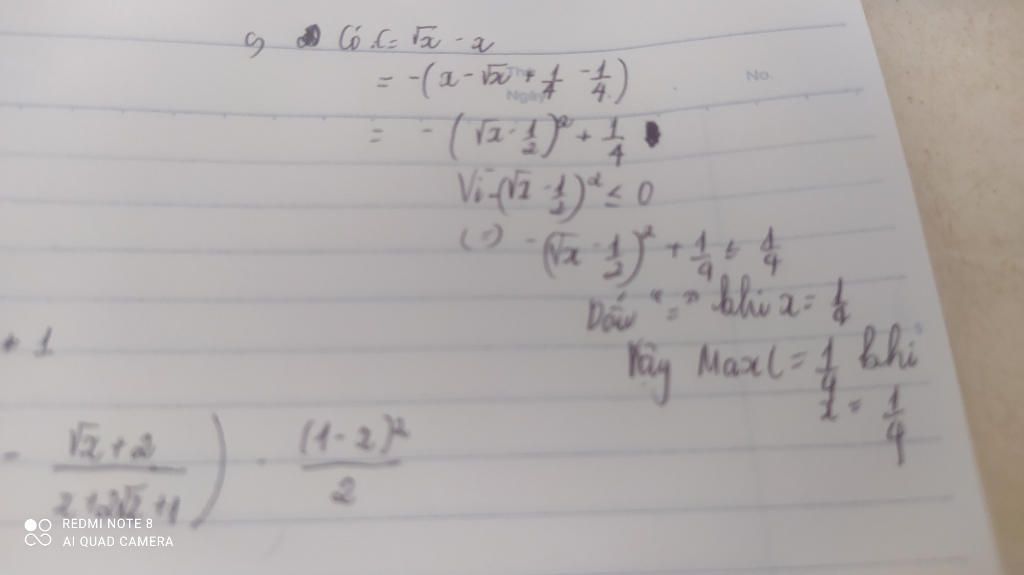 c) Có C = √x - x
= -(x - √x + 1/4 - 1/4)
= -(√x - 1/2)² + 1/4
Vì -(√x - 1/2)² ≤ 0
(=) -(√x - 1/2)² + 1/4 ≤ 1/4
Dấu "=" khi x = 1/4
Vậy Max C = 1/4 khi
x = 1/4
+ 1
- (√x + 2)/(x + 2√x + 1) ) . (1 - x)²/2
No.
Thứ
Ngày
REDMI NOTE 8
AI QUAD CAMERA